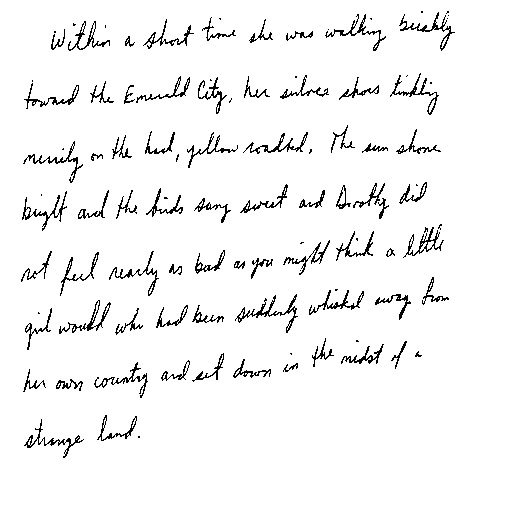 Within a short time she was walking briskly
toward the Emerald City, her silver shoes tinkling
merrily on the hard, yellow roadbed. The sun shone
bright and the birds sang sweet and Dorothy did
not feel nearly as bad as you might think a little
girl would who had been suddenly whisked away from
her own country and set down in the midst of a
strange land.